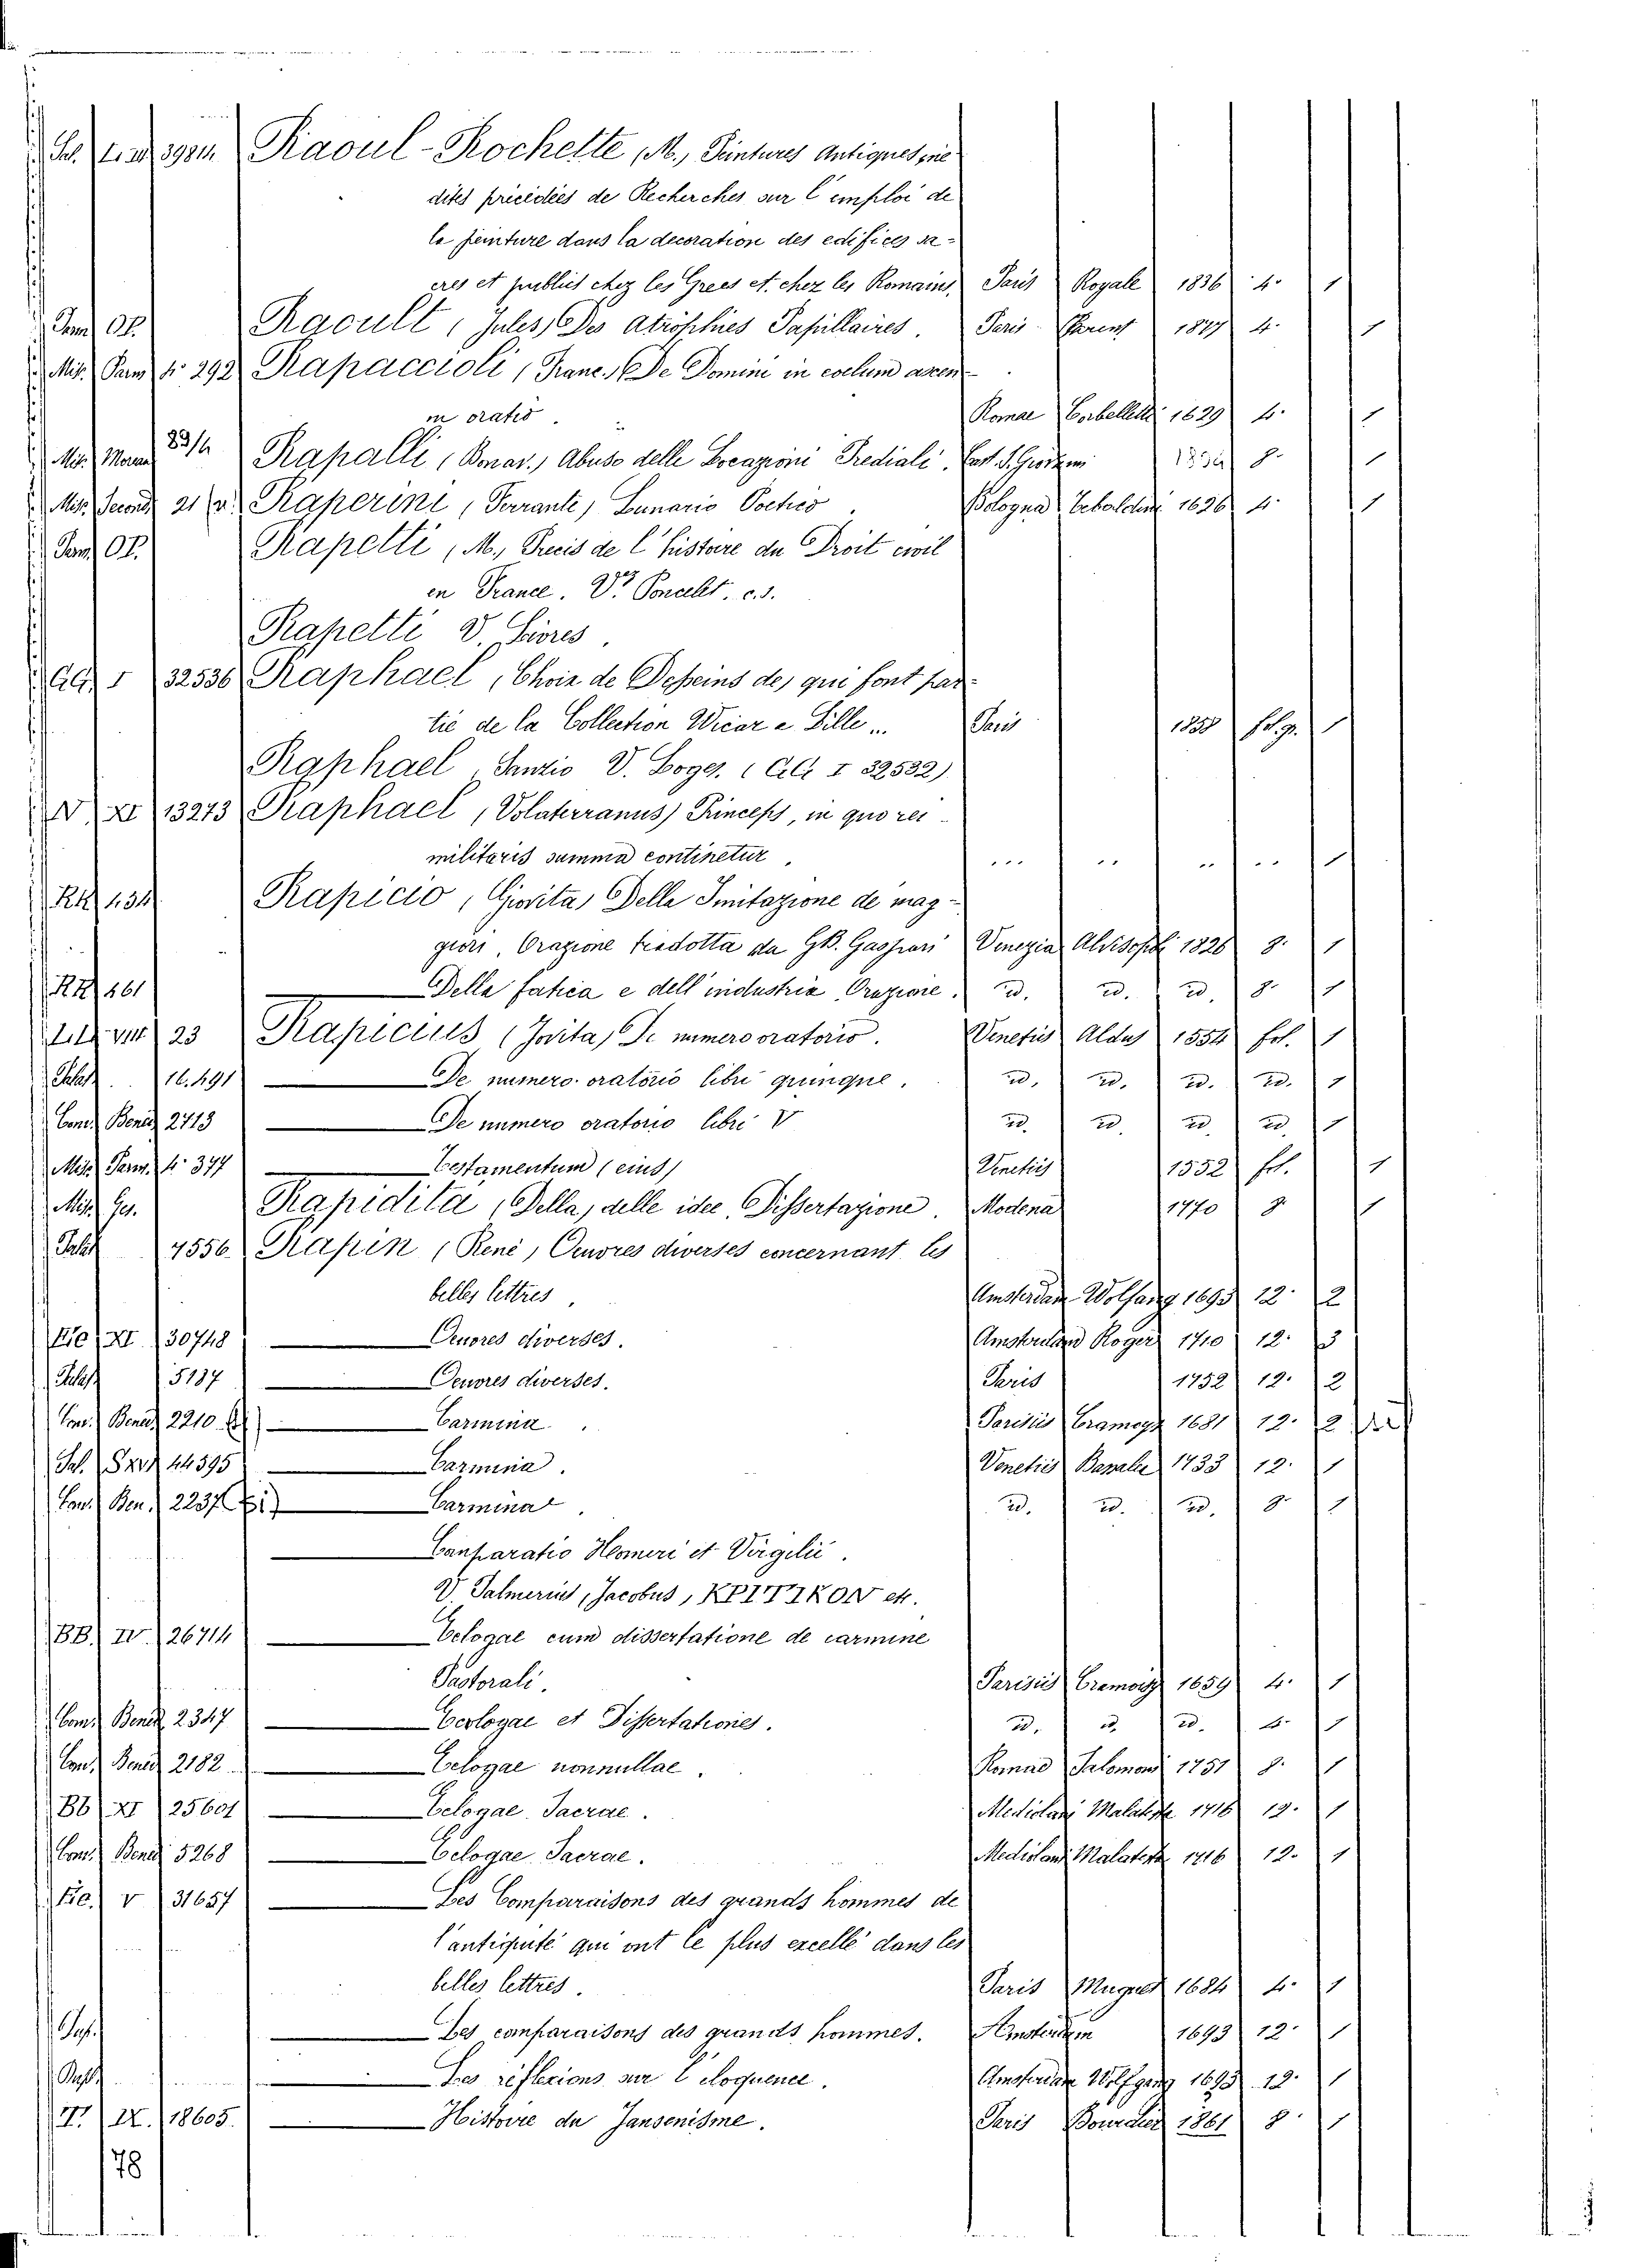 Raoul-Rochette, M., Peintures Antiques iné
dites précédées de Recherches sur l'emploi de
la peinture dans la decoration des edifices sa-
cres et publics chez les Grecs et chez les Romains, Paris Royale 1836 4. 1
OP. Raoult, Jules, Des atrophies Papillaires. Paris Parent 1877 4. 1
Mis. Parm. fo 292 Rapaccioli, Franc. De Domini in coelum ascen-
m oratio. Romae Corbelletti 1629 4. 1
Mis. 83/4 Rapalli, Bonav., Abuso delle Locazioni Prediali. 1834 8. 1
Mis. 21 Raperini, Ferrante, Lunario Poetico. Bologna Tebaldini 1626 4. 1
OP. Rapelli, M., Precis de l'histoire du Droit civil
en France. V. Poncelet. c.s.
Rapetti V. Livres.
I 32536 Raphael, Choix de Desseins de, qui font par-
tie de la Collection Wicar a Lille... Paris 1858 fol.g. 1
Raphael, Sanzio V. Loges. ( I 32532)
N XI 13273 Raphael, Volaterranus, Princeps, in quo rei
militaris summa continetur. ... .. .. .. 1
RR 434 Rapicio, Giovita, Della Imitazione de mag-
giori, Orazione tradotta da GB. Gaspari Venezia Alvisopoli 1826 8. 1
RR 461 Della fatica e dell'industria, Orazione. id. id. id. 8. 1
VIII 23 Rapicius (Jovita) De numero oratorio. Venetiis Aldus 1554 fol. 1
16.491 De numero oratorio libri quinque. id. id. id. id. 1
Com. Bened. 2713 De numero oratorio libri V id. id. id. id. 1
Misc. Parm. fo 377 Testamentum (eius) Venetiis 1552 fol. 1
Misc. Ges. Rapidità, Della, delle idee. Dissertazione. Modena 1770 8. 1
Palat. 7556 Rapin, René, Oeuvres diverses concernant les
belles lettres. Amsterdam Wolfang 1693 12. 2
XI 30748 Oeuvres diverses. Amsterdam Roger 1710 12. 3
Palat. 5137 Oeuvres diverses. Paris 1752 12. 2
Com. Bened. 2210 Carmina. Parisiis Cramoysi 1681 12. 2
44395 Carmina. Venetiis 1733 12. 1
Com. Ben. 2237 Carmina. id. id. id. 8. 1
Canparatio Homeri et Virgilii.
V. Palmerius, Jacobus, ΚΡΙΤΙΚΟΝ etc.
BB. IV 26714 Eclogae cum dissertatione de carmine
Pastorali. Parisiis Cramoisy 1659 4. 1
Com. Bened. 2347 Eclogae et Dissertationes. id. id. id. 4. 1
Com. Bened. 2182 Eclogae nonnullae. Romae Salomoni 1751 8. 1
Bb XI 25601 Eclogae Sacrae. Mediolani Malatesta 1716 12. 1
Com. Bened. 5268 Eclogae Sacrae. Mediolani Malatesta 1716 12. 1
V 31657 Les Comparaisons des grands hommes de
l'antiquité qui ont le plus excellé dans les
belles lettres. Paris Muguet 1684 4. 1
Les comparaisons des grands hommes. Amsterdam 1693 12. 1
Les réflexions sur l'eloquence. Amsterdam Wolfgang 1693 12. 1
T. IX. 18605. Histoire du Jansenisme. Paris Bourdier 1861 8. 1
78